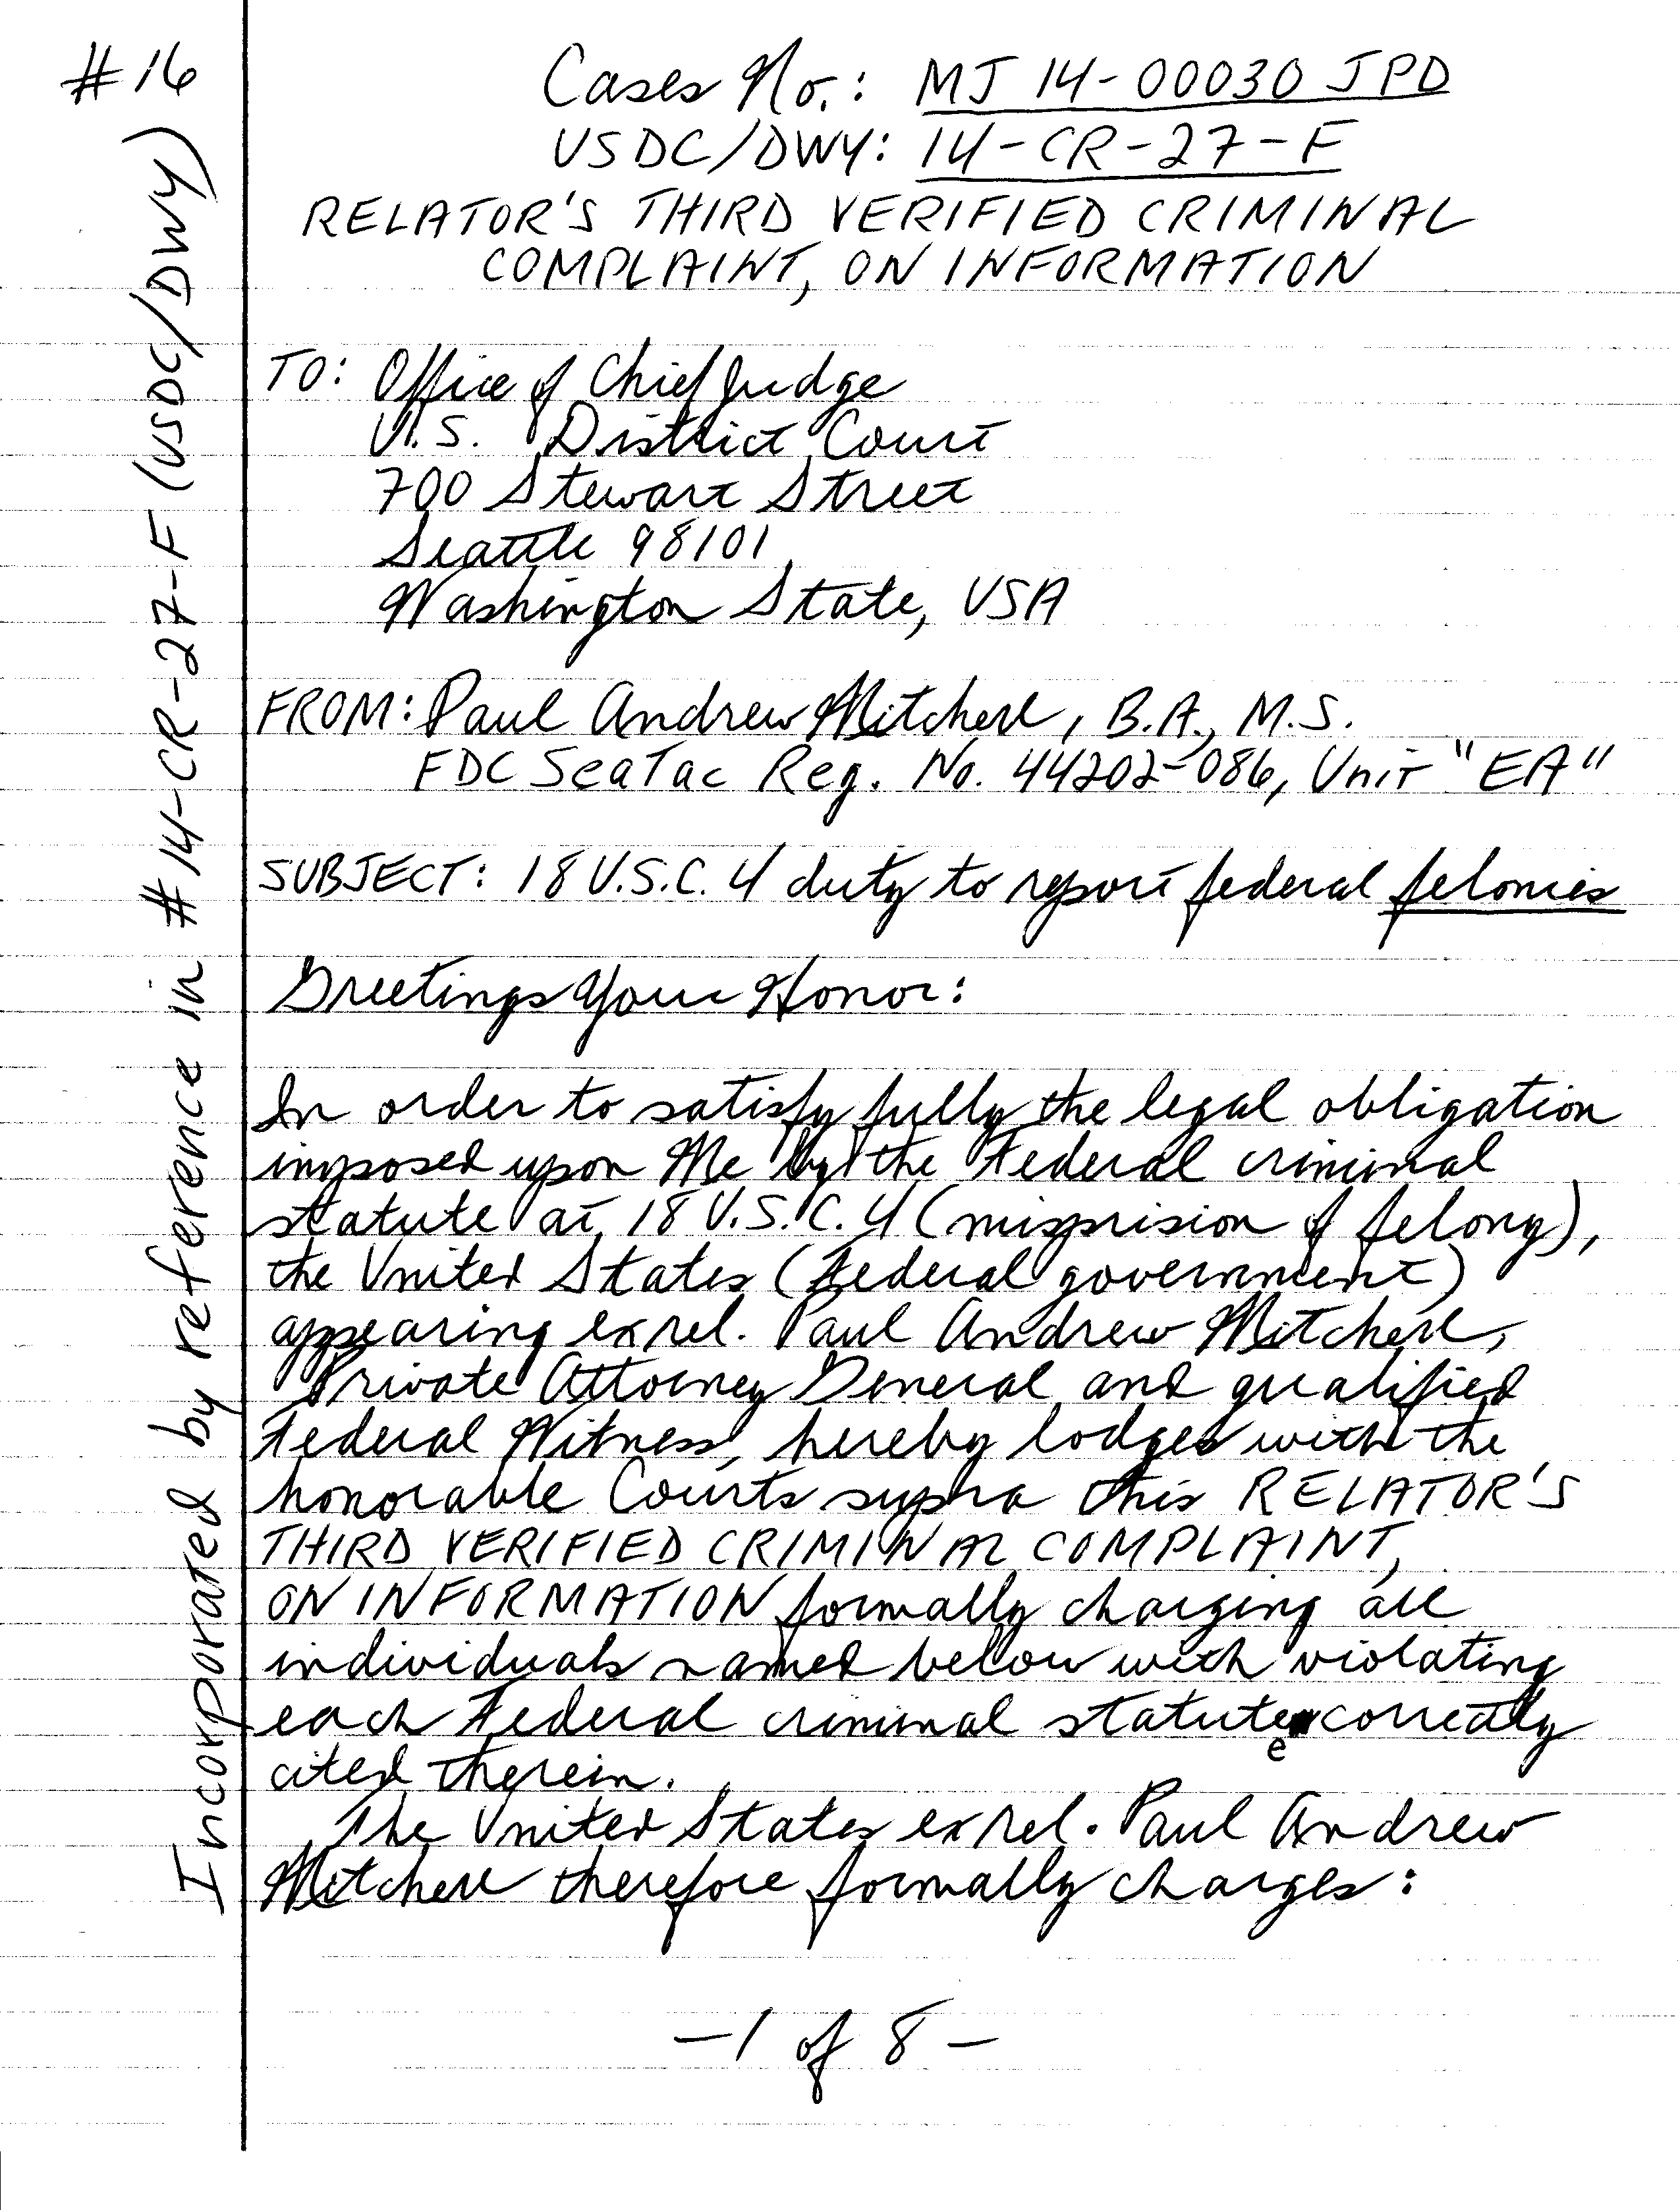 #16
Cases No.: MJ 14-00030 JPD
USDC/DWY: 14-CR-27-F
RELATOR'S THIRD VERIFIED CRIMINAL
COMPLAINT, ON INFORMATION
TO: Office of Chief Judge
U.S. District Court
700 Stewart Street
Seattle 98101
Washington State, USA
FROM: Paul Andrew Mitchell, B.A., M.S.
FDC SeaTac Reg. No. 44202-086, Unit "EA"
SUBJECT: 18 U.S.C. 4 duty to report federal felonies
Greetings Your Honor:
In order to satisfy fully the legal obligation
imposed upon Me by the Federal criminal
statute at 18 U.S.C. 4 (misprision of felony),
the United States (Federal government)
appearing ex rel. Paul Andrew Mitchell,
Private Attorney General and qualified
Federal Witness, hereby lodges with the
honorable Courts supra this RELATOR'S
THIRD VERIFIED CRIMINAL COMPLAINT,
ON INFORMATION formally charging all
individuals named below with violating
each Federal criminal statute correctly
cited therein.
The United States ex rel. Paul Andrew
Mitchell therefore formally charges:
-1 of 8-
Incorporated by reference in #14-CR-27-F (USDC/DWY)